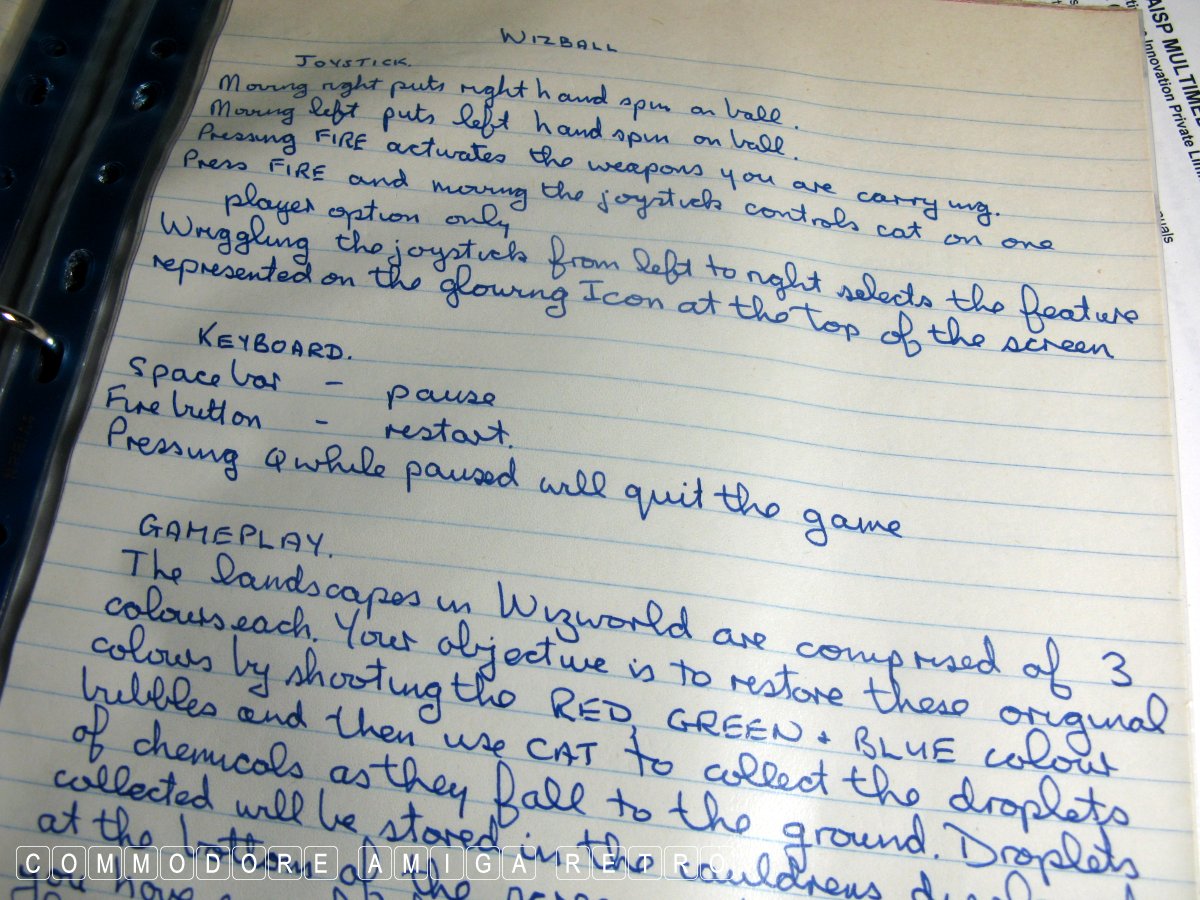 WIZBALL
JOYSTICK.
Moving right puts right hand spin on ball.
Moving left puts left hand spin on ball.
Pressing FIRE activates the weapons you are carrying.
Press FIRE and moving the joystick controls cat on one
player option only
Wriggling the joystick from left to right selects the feature
represented on the glowing Icon at the top of the screen
KEYBOARD.
Space bar - pause
Fire button - restart.
Pressing Q while paused will quit the game
GAMEPLAY.
The landscapes in Wizworld are comprised of 3
colours each. Your objective is to restore these original
colours by shooting the RED, GREEN + BLUE colour
bubbles and then use CAT to collect the droplets
of chemicals as they fall to the ground. Droplets
collected will be stored in the cauldrons
at the bottom of the
you have
COMMODORE AMIGA RETRO
AISP MULTIMED
Innovation Private Lim
uals